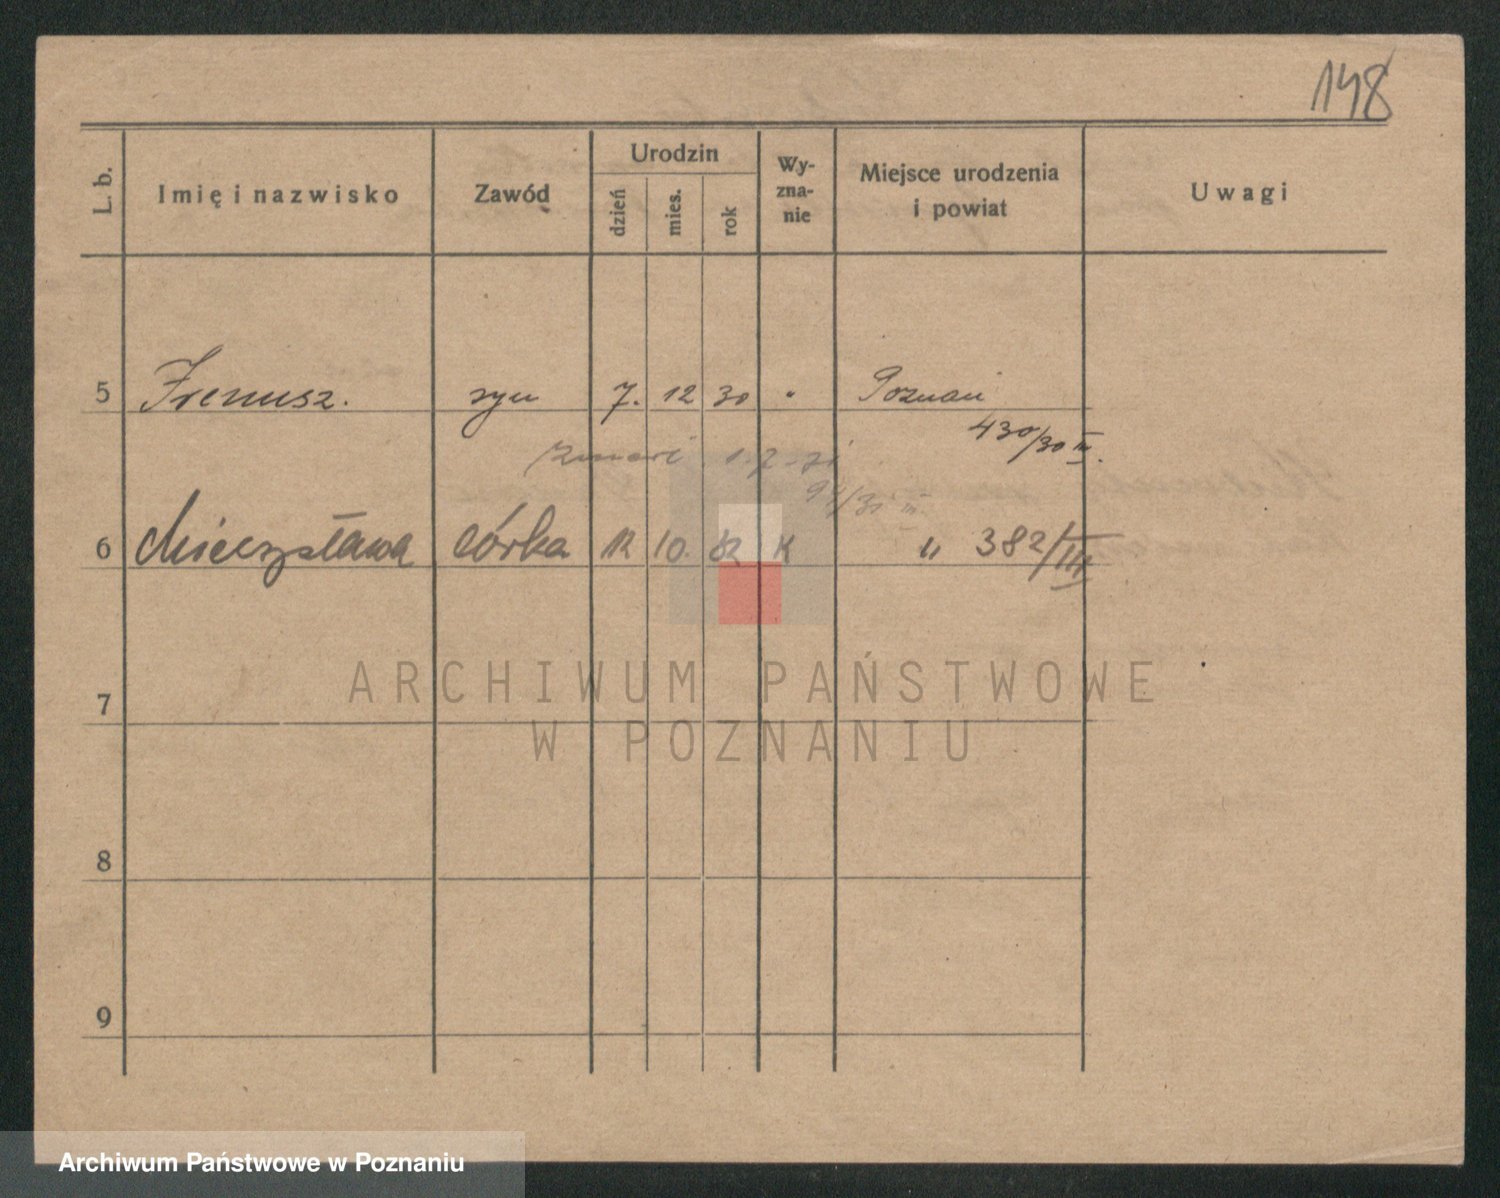 148
L. b. Imię i nazwisko Zawód Urodzin dzień mies. rok Wy-zna-nie Miejsce urodzenia i powiat Uwagi
5 Irenusz. syn 7. 12 30 " Poznań
430/30 III.
zmarł 1.7.31
94/31 III.
6 Mieczysława córka 12 10. 32 K " 382/III
7
8
9
ARCHIWUM PAŃSTWOWE
W POZNANIU
Archiwum Państwowe w Poznaniu